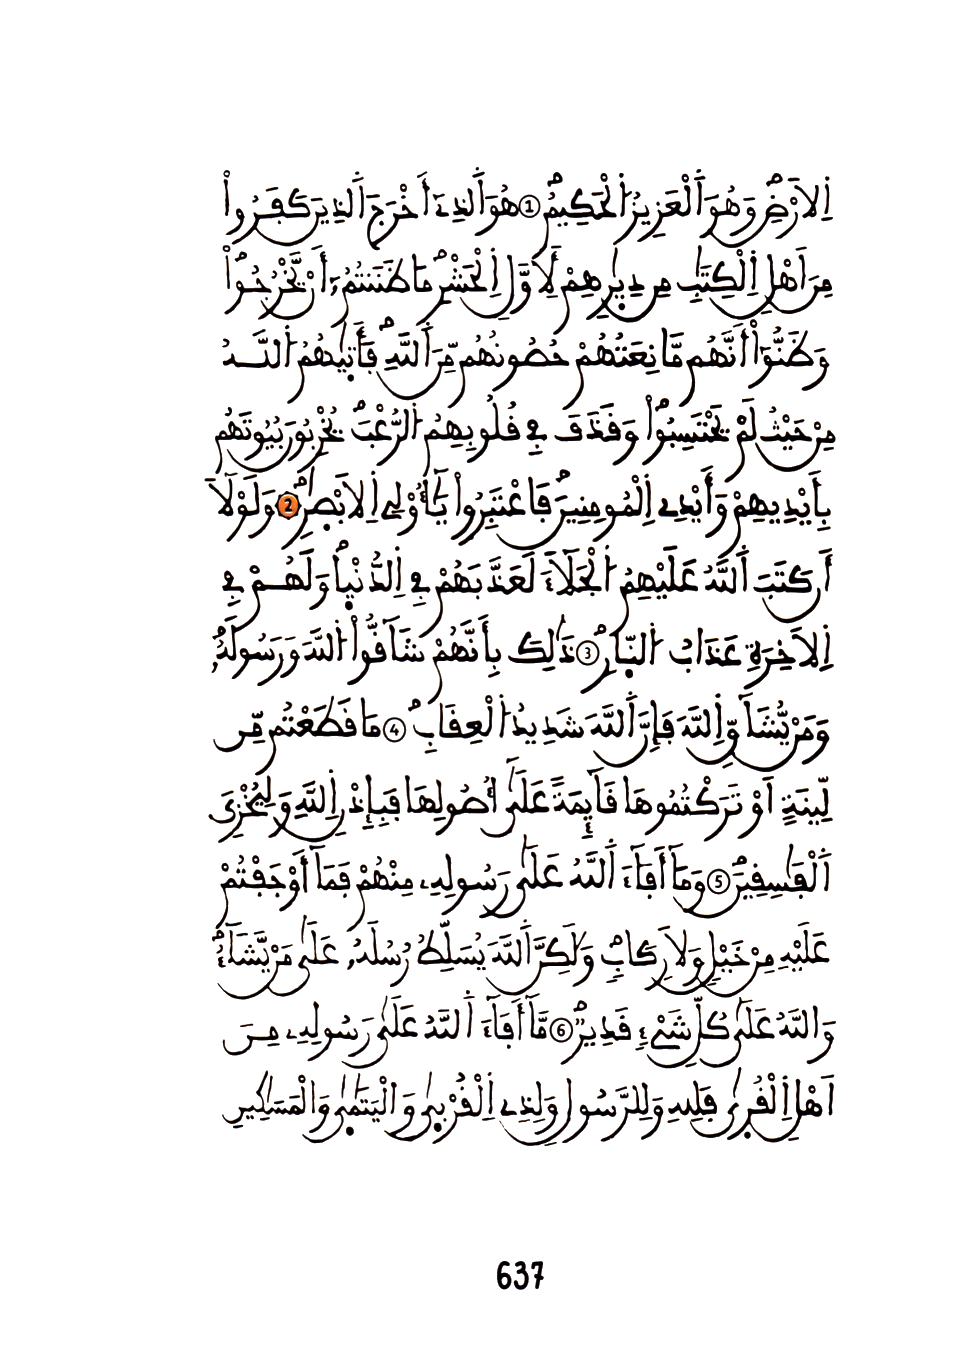 اِ۬لَارْضِۖ وَهُوَ اَ۬لْعَزِيزُ اُ۬لْحَكِيمُۖ ① هُوَ اَ۬لذِےٓ أَخْرَجَ اَ۬لذِينَ كَفَرُواْ
مِنَ اَهْلِ اِ۬لْكِتَٰبِ مِن دِيٰ۪رِهِمْ لِأَوَّلِ اِ۬لْحَشْرِۖ مَا ظَنَنتُمُۥٓ أَنْ يَّخْرُجُواْۖ
وَظَنُّوٓاْ أَنَّهُم مَّانِعَتُهُمْ حُصُونُهُم مِّنَ اَ۬للَّهِۖ فَأَت۪يٰهُمُ اُ۬للَّهُ
مِنْ حَيْثُ لَمْ يَحْتَسِبُواْۖ وَقَذَفَ فِے قُلُوبِهِمُ اُ۬لرُّعْبَۖ يُخْرِبُونَ بُيُوتَهُم
بِأَيْدِيهِمْ وَأَيْدِے اِ۬لْمُومِنِينَۖ فَاعْتَبِرُواْ يَٰٓأُوْلِے اِ۬لَابْصٰ۪رِۖ ② وَلَوْلَآ
أَن كَتَبَ اَ۬للَّهُ عَلَيْهِمُ اُ۬لْجَلَآءَ لَعَذَّبَهُمْ فِے اِ۬لدُّنْي۪اۖ وَلَهُمْ فِے
اِ۬لَاخِرَةِ عَذَابُ اُ۬لنّ۪ارِۖ ③ ذَٰلِكَ بِأَنَّهُمْ شَآقُّواْ اُ۬للَّهَ وَرَسُولَهُۥۖ
وَمَنْ يُّشَآقِّ اِ۬للَّهَ فَإِنَّ اَ۬للَّهَ شَدِيدُ اُ۬لْعِقَابِۖ ④ مَا قَطَعْتُم مِّن
لِّينَةٍ اَوْ تَرَكْتُمُوهَا قَآئِمَةً عَلَىٰٓ أُصُولِهَا فَبِإِذْنِ اِ۬للَّهِ وَلِيُخْزِىَ
اَ۬لْفَٰسِقِينَۖ ⑤ وَمَآ أَفَآءَ اَ۬للَّهُ عَلَىٰ رَسُولِهِۦ مِنْهُمْ فَمَآ أَوْجَفْتُمْ
عَلَيْهِ مِنْ خَيْلٍ وَلَا رِكَابٖۖ وَلَٰكِنَّ اَ۬للَّهَ يُسَلِّطُ رُسُلَهُۥ عَلَىٰ مَنْ يَّشَآءُۖ
وَاللَّهُ عَلَىٰ كُلِّ شَےْءٖ قَدِيرٞۖ ⑥ مَّآ أَفَآءَ اَ۬للَّهُ عَلَىٰ رَسُولِهِۦ مِنَ
اَهْلِ اِ۬لْقُر۪ىٰ فَلِلهِ وَلِلرَّسُولِ وَلِذِے اِ۬لْقُرْب۪ىٰ وَالْيَتَٰم۪ىٰ وَالْمَسَٰكِينِ
637